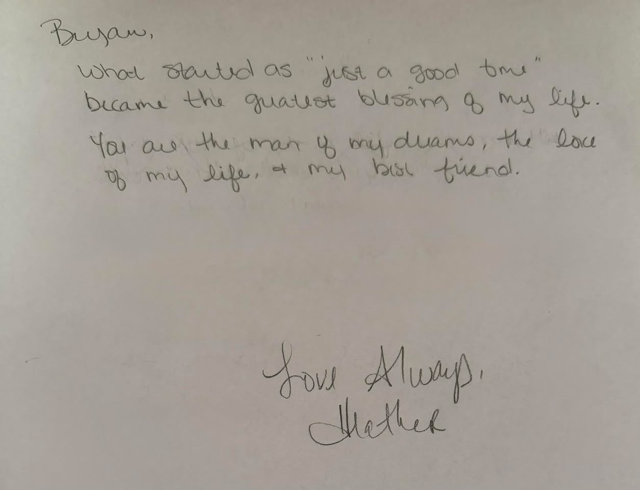 Bryan,
What started as "just a good time"
became the greatest blessing of my life.
You are the man of my dreams, the love
of my life, & my best friend.
Love Always,
Heather